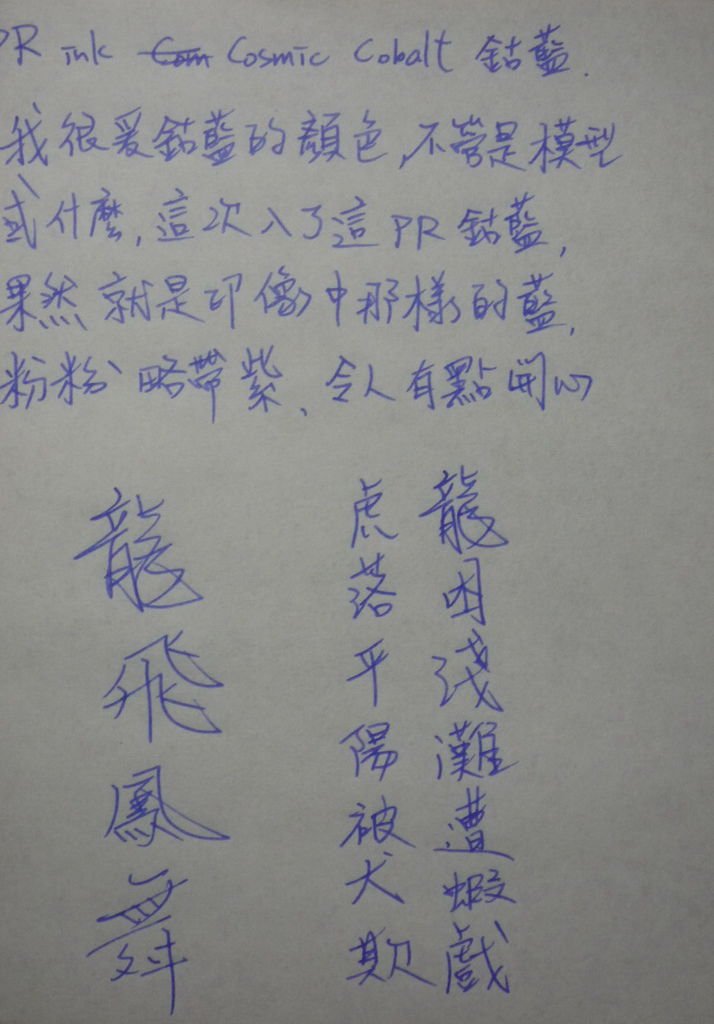 PR ink Com Cosmic Cobalt 鈷藍.
我很爱鈷藍的顏色,不管是模型
或什麼,這次入了這PR鈷藍,
果然就是印像中那樣的藍,
粉粉略帶紫、令人有點開心
龍飛鳳舞
龍困淺灘遭蝦戲
虎落平陽被犬欺